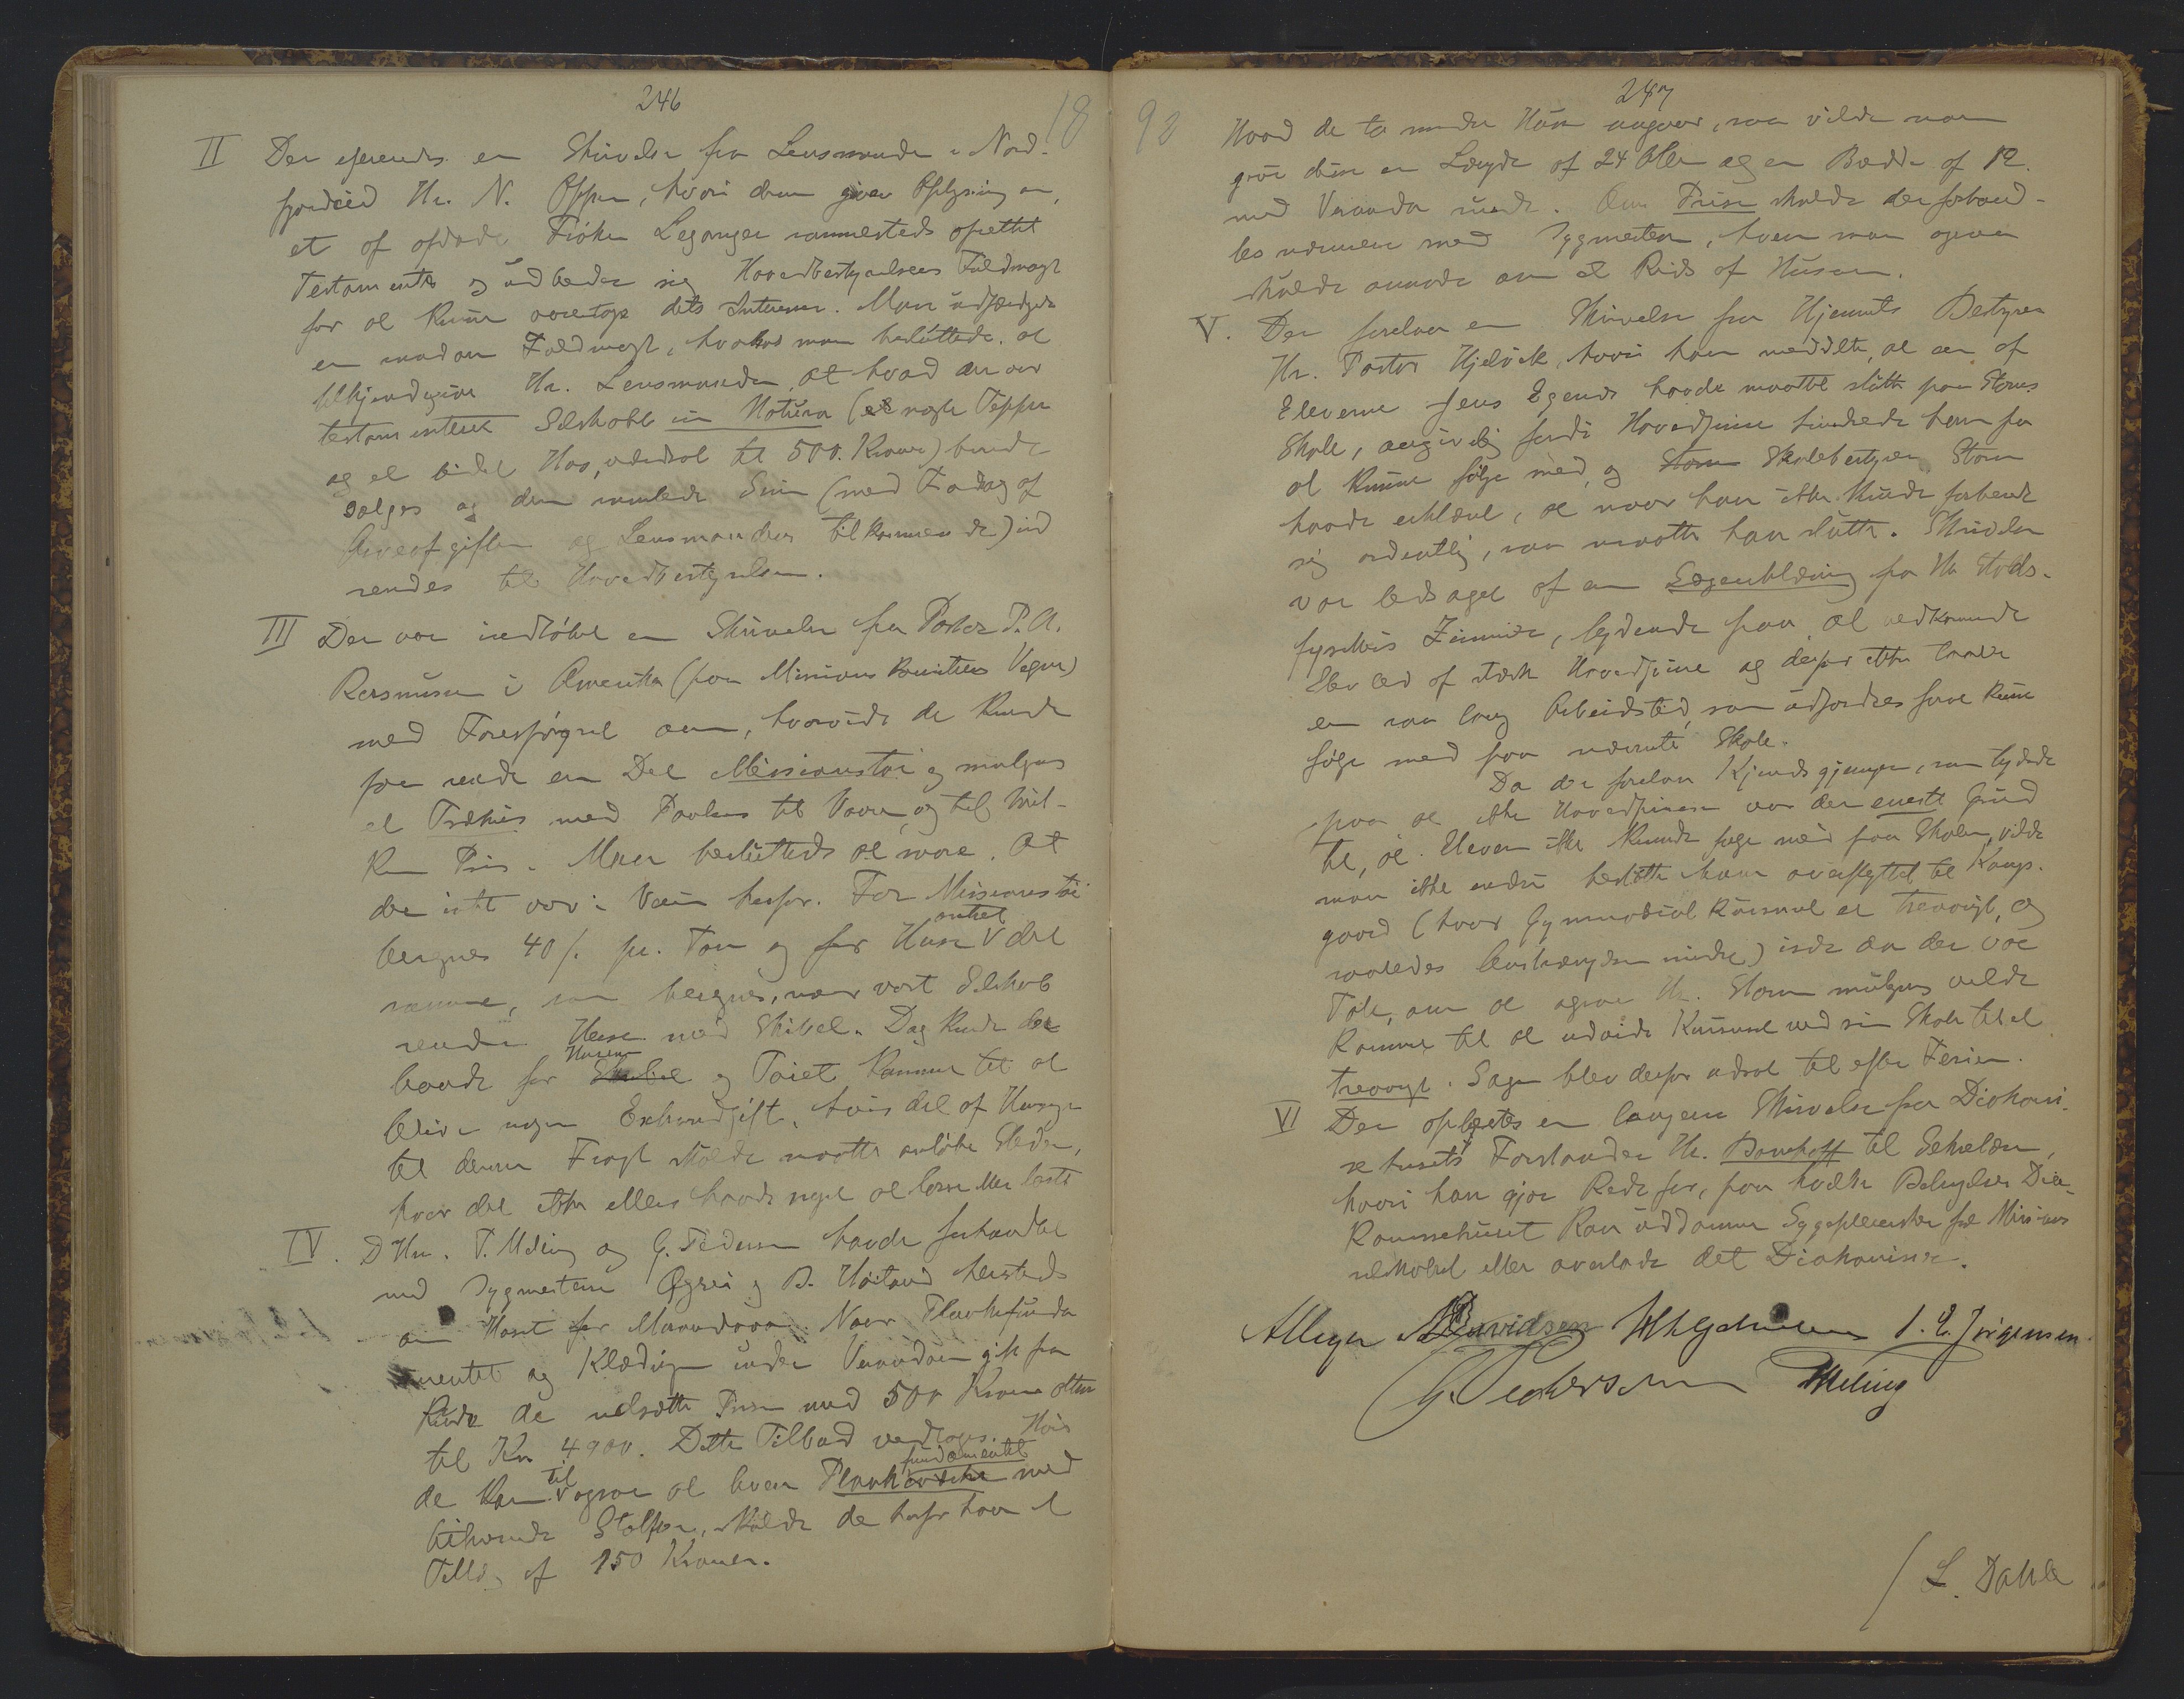 246
18
II Der referertes en Skrivelse fra Lensmanden i Nord-
fjordeid Hr. N. Oppen, hvori denne giver Oplysning om,
et af afdøde Frøken Leganger sammesteds oprettet
Testamente og udbeder sig Hovedbestyrelsens Fuldmagt
for at kunne varetage dets Interesser. Man udfærdigede
en saadan Fuldmagt, hvorhos man besluttede at
tilkjendegive Hr. Lensmanden, at hvad der var
testamenteret Selskabet in Natura (et nogle Tepper
og et lidet Hus, vurderet til 500. Kroner) burde
sælges og den samlede Sum (med Fradrag af
Arveafgiften og Lensmanden tilkommende) ind
sendes til Hovedbestyrelsen.
III Der var indløbet en Skrivelse fra Pastor P. A.
Rasmussen i Amerika (paa Missions Komiteens Vegne)
med Forespørgsel om, hvorvidt de kunde
faa sende en Del Missionstøi og muligens
et Træhus med Posten til Vaaren, og til hvil-
ken Pris. Man besluttede at svare. At
der intet var i Veien herfor. For Missionstøi
beregnes 40/. pr. Ton og for Huse antat det
samme, som beregnes, naar vort Selskab
sender Huse med Skibet. Dog kunde der
baade for Skibet Husene og Tøiet komme til at
blive nogen Extraudgift, hvis det af Hensyn
til denne Fragt skulde maatte anløbe Steder,
hvor det ikke ellers havde noget at losse eller laste
IV. D'Hrr. T. Meling og G. Pedersen havde forhandlet
med Bygmesterne Øgrei og B. Høiland hersteds
om Huset for Manandona. Naar Plankefunda
mentet og Klædningen under Verandaen gik fra
kunde de nedsætte Prisen med 500 Kroner altsaa
til Kr 4900. Dette Tilbud vedtoges. Hvis
de kan til ogsaa at levere Plankeværket fundamentet med
tilhørende Stolper, skulde de herfor have et
Tillæg af 150 Kroner.
92
247
Hvad de to mindre Huse angaar, saa vilde man
give disse en Længde af 24 Alen og en Bredde af 12.
med Veranda rundt. Om Prisen skulde der forhand-
les nærmere med Bygmesteren, hvem man ogsaa
skulde anmode om et Rids af Husene.
V. Der forelaa en Skrivelse fra Hjemmets Bestyrer
Hr. Pastor Gjeløck, hvori han meddelte, at en af
Eleverne Jens Egenes havde maattet slutte paa Storms
Skole, angivelig fordi Hovedpine hindrede ham fra
at kunne følge med, og Storm Skolebestyrer Storm
havde erklæret, at naar han ikke kunde forberede
sig ordentlig, saa maatte han slutte. Skrivelsen
var ledsaget af en Lægeerklæring fra Hr Stads-
fysikus Zimmer, lydende paa, at vedkommende
Elev led af stærk Hovedpine og derfor ikke taalte
en saa lang Arbeidstid, som udfordres forat kunne
følge med paa nævnte Skole.
Da der forelaa Kjendsgjerninger, som tydede
paa at ikke Hovedpinen var den eneste Grund
til, at Eleven ikke kunde følge med paa Skolen, vilde
man ikke endnu beslutte ham overflyttet til Kongs-
gaard (hvor Gymnasial Kursuset er treaarigt, og
saaledes Anstrængelsen mindre) især da der var
Tale, om at ogsaa Hr. Storm muligens vilde
komme til at udvide Kursuset ved sin Skole til et
treaarigt. Sagen blev derfor udsat til efter Ferien.
VI Der oplæstes en længere Skrivelse fra Diakoni-
sehusets Forstander Hr. Bornhoff til Sekretæren,
hvori han gjør Rede for, paa hvilke Betingelser Dia-
konissehuset kan uddanne Sygeplejersker for Missions
selskabet eller overlade det Diakonisser.
A. Meyer Davidsen I. E. Jørgensen.
G. Pedersen TMeling
/ L. Dahle